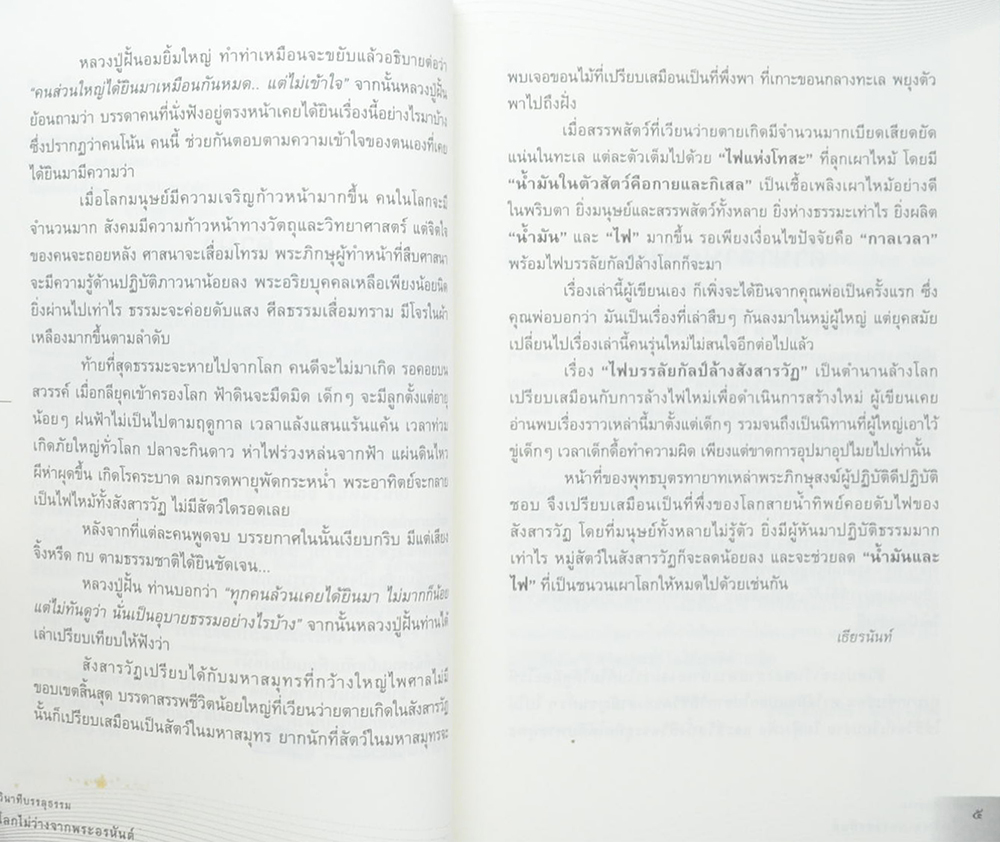 หลวงปู่ฝั้นอมยิ้มใหญ่ ทำท่าเหมือนจะขยับแล้วอธิบายต่อว่า
“คนส่วนใหญ่ได้ยินมาเหมือนกันหมด.. แต่ไม่เข้าใจ” จากนั้นหลวงปู่ฝั้น
ย้อนถามว่า บรรดาคนที่นั่งฟังอยู่ตรงหน้าเคยได้ยินเรื่องนี้อย่างไรมาบ้าง
ซึ่งปรากฏว่าคนโน้น คนนี้ ช่วยกันตอบตามความเข้าใจของตนเองที่เคย
ได้ยินมามีความว่า
เมื่อโลกมนุษย์มีความเจริญก้าวหน้ามากขึ้น คนในโลกจะมี
จำนวนมาก สังคมมีความก้าวหน้าทางวัตถุและวิทยาศาสตร์ แต่จิตใจ
ของคนจะถอยหลัง ศาสนาจะเสื่อมโทรม พระภิกษุผู้ทำหน้าที่สืบศาสนา
จะมีความรู้ด้านปฏิบัติภาวนาน้อยลง พระอริยบุคคลเหลือเพียงน้อยนิด
ยิ่งผ่านไปเท่าไร ธรรมะจะค่อยดับแสง ศีลธรรมเสื่อมทราม มีโจรในผ้า
เหลืองมากขึ้นตามลำดับ
ท้ายที่สุดธรรมะจะหายไปจากโลก คนดีจะไม่มาเกิด รอคอยบน
สวรรค์ เมื่อกลียุคเข้าครองโลก ฟ้าดินจะมืดมิด เด็กๆ จะมีลูกตั้งแต่อายุ
น้อยๆ ฝนฟ้าไม่เป็นไปตามฤดูกาล เวลาแล้งแสนแร้นแค้น เวลาท่วม
เกิดภัยใหญ่ทั่วโลก ปลาจะกินดาว ห่าไฟร่วงหล่นจากฟ้า แผ่นดินไหว
ผีห่าผุดขึ้น เกิดโรคระบาด ลมกรดพายุพัดกระหน่ำ พระอาทิตย์จะกลาย
เป็นไฟไหม้ทั้งสังสารวัฏ ไม่มีสัตว์ใดรอดเลย
หลังจากที่แต่ละคนพูดจบ บรรยกาศในนั้นเงียบกริบ มีแต่เสียง
จิ้งหรีด กบ ตามธรรมชาติได้ยินชัดเจน...
หลวงปู่ฝั้น ท่านบอกว่า “ทุกคนล้วนเคยได้ยินมา ไม่มากก็น้อย
แต่ไม่ทันดูว่า นั่นเป็นอุบายธรรมอย่างไรบ้าง” จากนั้นหลวงปู่ฝั้นท่านได้
เล่าเปรียบเทียบให้ฟังว่า
สังสารวัฏเปรียบได้กับมหาสมุทรที่กว้างใหญ่ไพศาลไม่มี
ขอบเขตสิ้นสุด บรรดาสรรพชีวิตน้อยใหญ่ที่เวียนว่ายตายเกิดในสังสารวัฏ
นั้นก็เปรียบเสมือนเป็นสัตว์ในมหาสมุทร ยากนักที่สัตว์ในมหาสมุทรจะ
วินาทีบรรลุธรรม
โลกไม่ว่างจากพระอรหันต์
พบเจอขอนไม้ที่เปรียบเสมือนเป็นที่พึ่งพา ที่เกาะขอนกลางทะเล พยุงตัว
พาไปถึงฝั่ง
เมื่อสรรพสัตว์ที่เวียนว่ายตายเกิดมีจำนวนมากเบียดเสียดยัด
แน่นในทะเล แต่ละตัวเต็มไปด้วย “ไฟแห่งโทสะ” ที่ลุกเผาไหม้ โดยมี
“น้ำมันในตัวสัตว์คือกายและกิเลส” เป็นเชื้อเพลิงเผาไหม้อย่างดี
ในพริบตา ยิ่งมนุษย์และสรรพสัตว์ทั้งหลาย ยิ่งห่างธรรมะเท่าไร ยิ่งผลิต
“น้ำมัน” และ “ไฟ” มากขึ้น รอเพียงเงื่อนไขปัจจัยคือ “กาลเวลา”
พร้อมไฟบรรลัยกัลป์ล้างโลกก็จะมา
เรื่องเล่านี้ผู้เขียนเอง ก็เพิ่งจะได้ยินจากคุณพ่อเป็นครั้งแรก ซึ่ง
คุณพ่อบอกว่า มันเป็นเรื่องที่เล่าสืบๆ กันลงมาในหมู่ผู้ใหญ่ แต่ยุคสมัย
เปลี่ยนไปเรื่องเล่านี้คนรุ่นใหม่ไม่สนใจอีกต่อไปแล้ว
เรื่อง “ไฟบรรลัยกัลป์ล้างสังสารวัฏ” เป็นตำนานล้างโลก
เปรียบเสมือนกับการล้างไพ่ใหม่เพื่อดำเนินการสร้างใหม่ ผู้เขียนเคย
อ่านพบเรื่องราวเหล่านี้มาตั้งแต่เด็กๆ รวมจนถึงเป็นนิทานที่ผู้ใหญ่เอาไว้
ขู่เด็กๆ เวลาเด็กดื้อทำความผิด เพียงแต่ขาดการอุปมาอุปไมยไปเท่านั้น
หน้าที่ของพุทธบุตรทายาทเหล่าพระภิกษุสงฆ์ผู้ปฏิบัติดีปฏิบัติ
ชอบ จึงเปรียบเสมือนเป็นที่พึ่งของโลกสายน้ำทิพย์คอยดับไฟของ
สังสารวัฏ โดยที่มนุษย์ทั้งหลายไม่รู้ตัว ยิ่งมีผู้หันมาปฏิบัติธรรมมาก
เท่าไร หมู่สัตว์ในสังสารวัฏก็จะลดน้อยลง และจะช่วยลด “น้ำมันและ
ไฟ” ที่เป็นชนวนเผาโลกให้หมดไปด้วยเช่นกัน
เธียรนันท์
๕